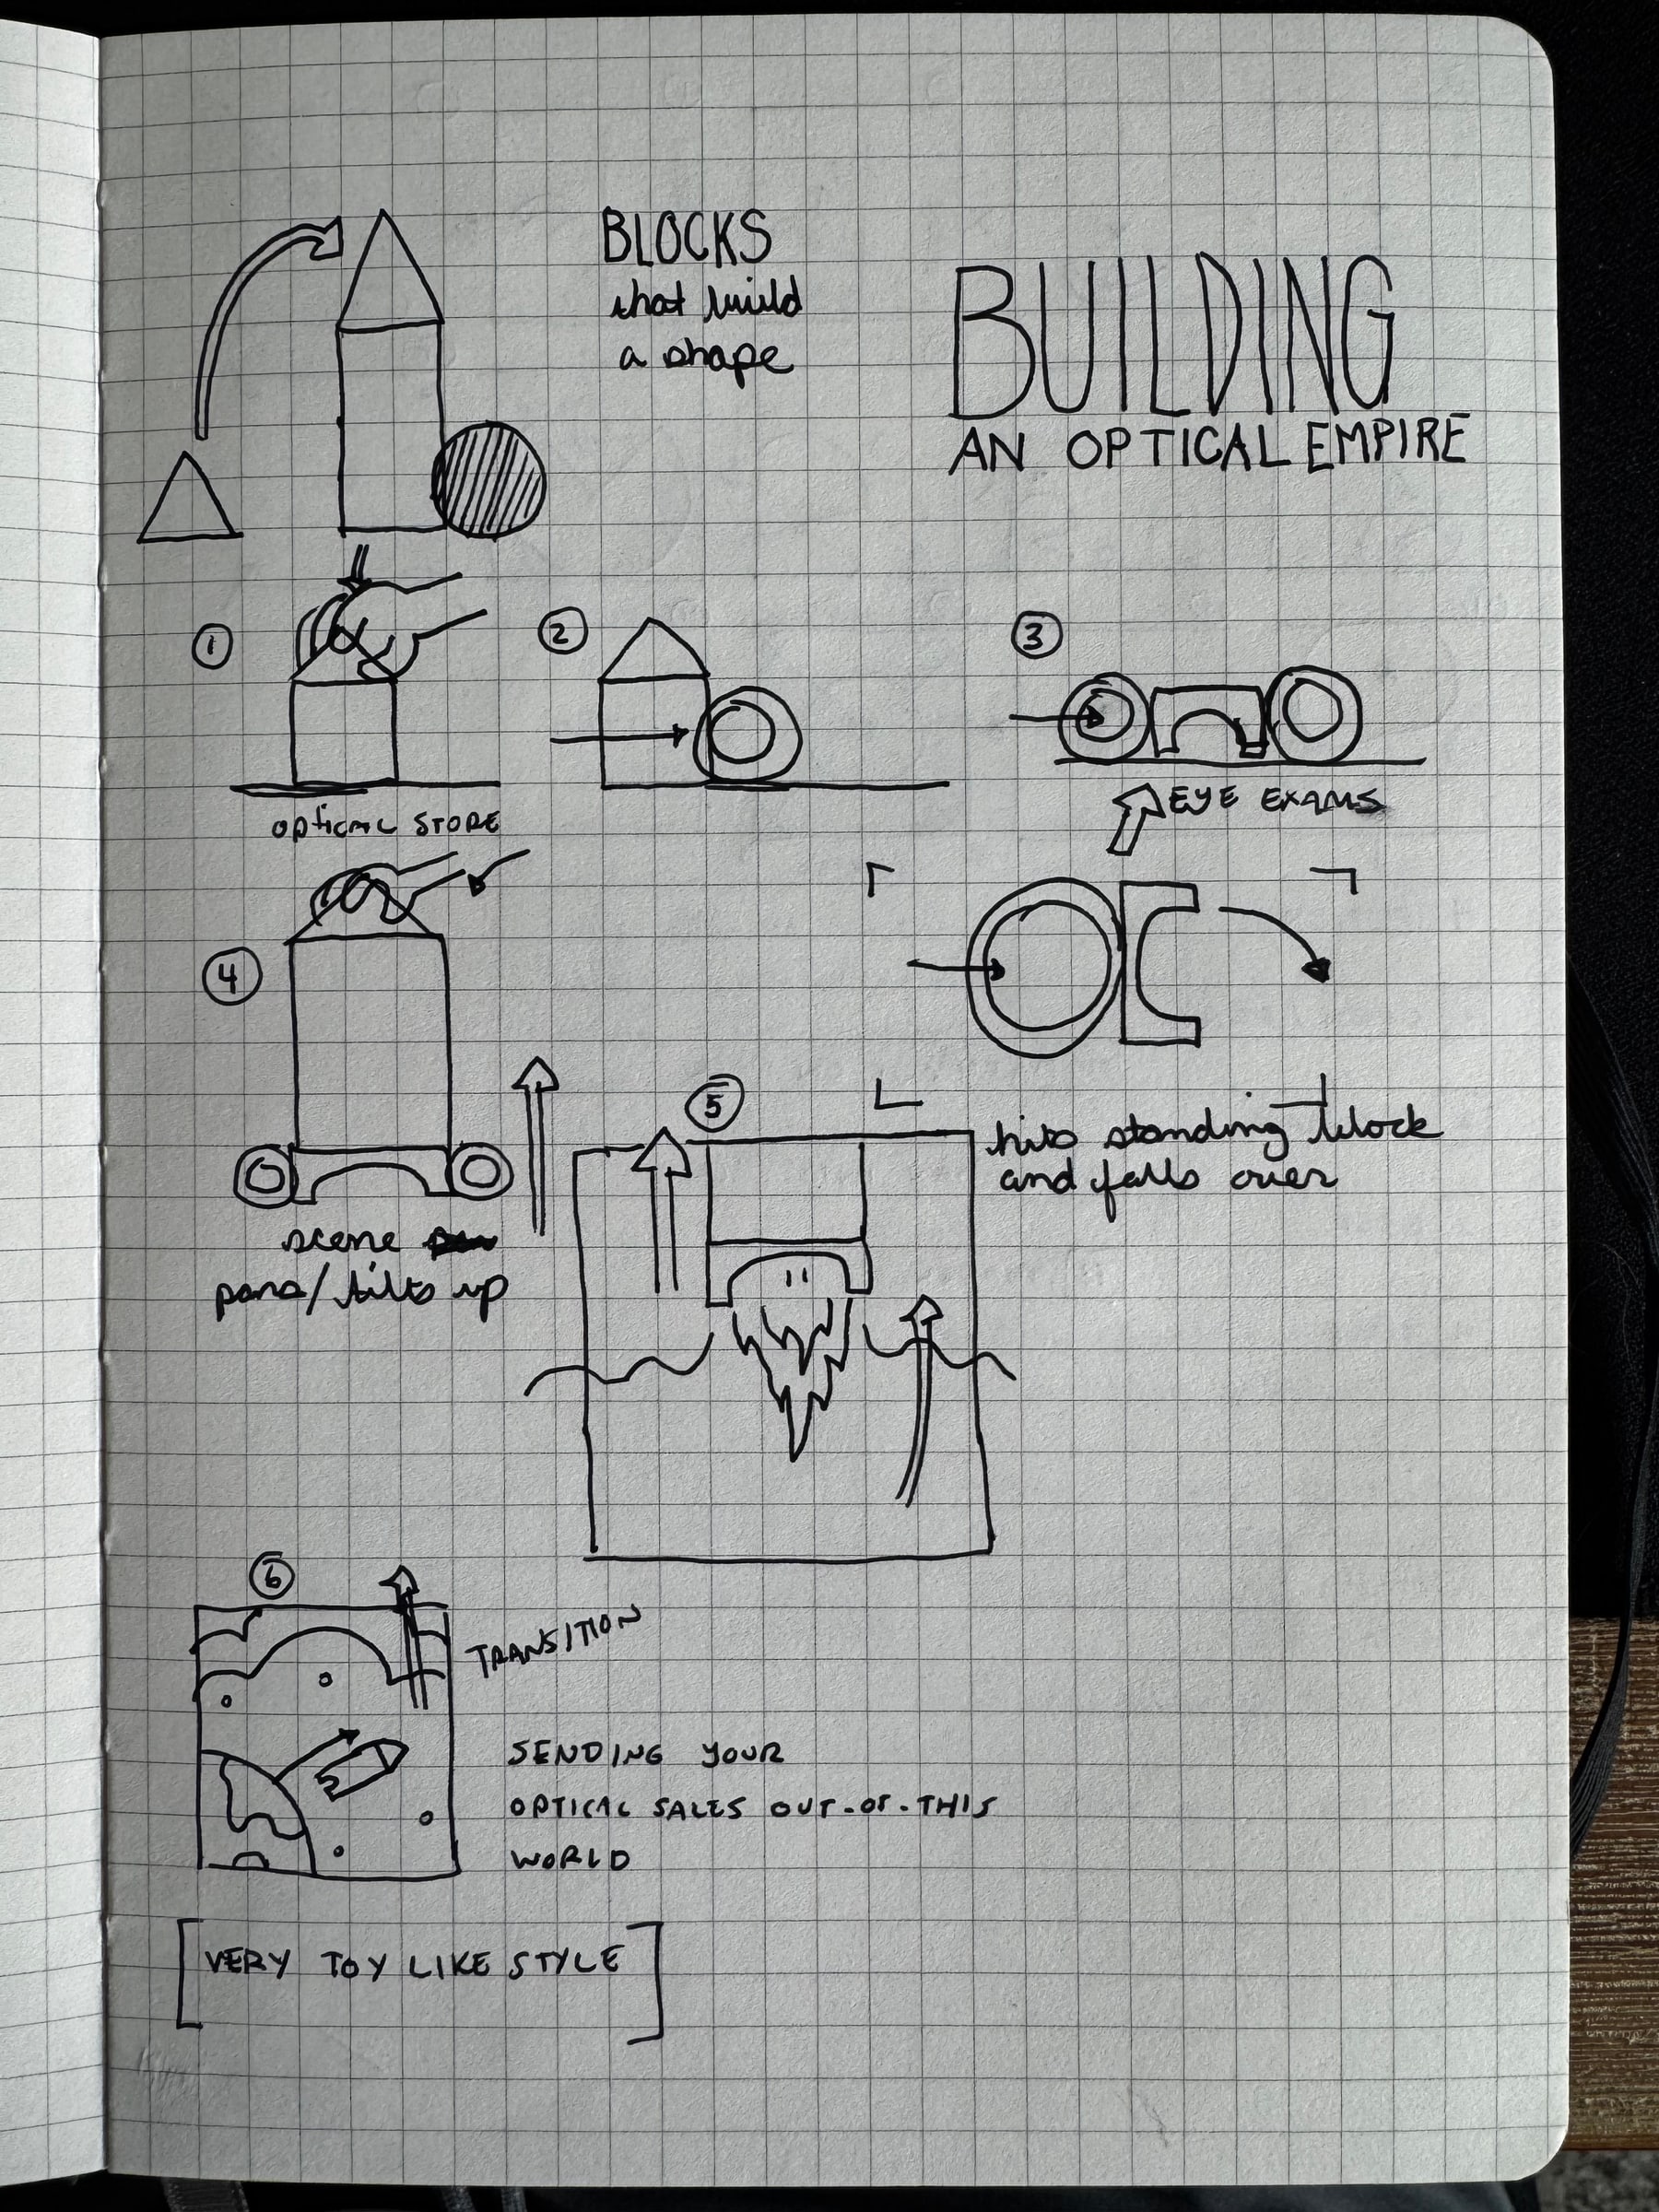 BLOCKS
that build
a shape
BUILDING
AN OPTICAL EMPIRE
1
2
3
OPTICAL STORE
EYE EXAMS
4
5
hits standing block
and falls over
scene
pans/tilts up
6
TRANSITION
SENDING YOUR
OPTICAL SALES OUT-OF-THIS
WORLD
[VERY TOY LIKE STYLE]